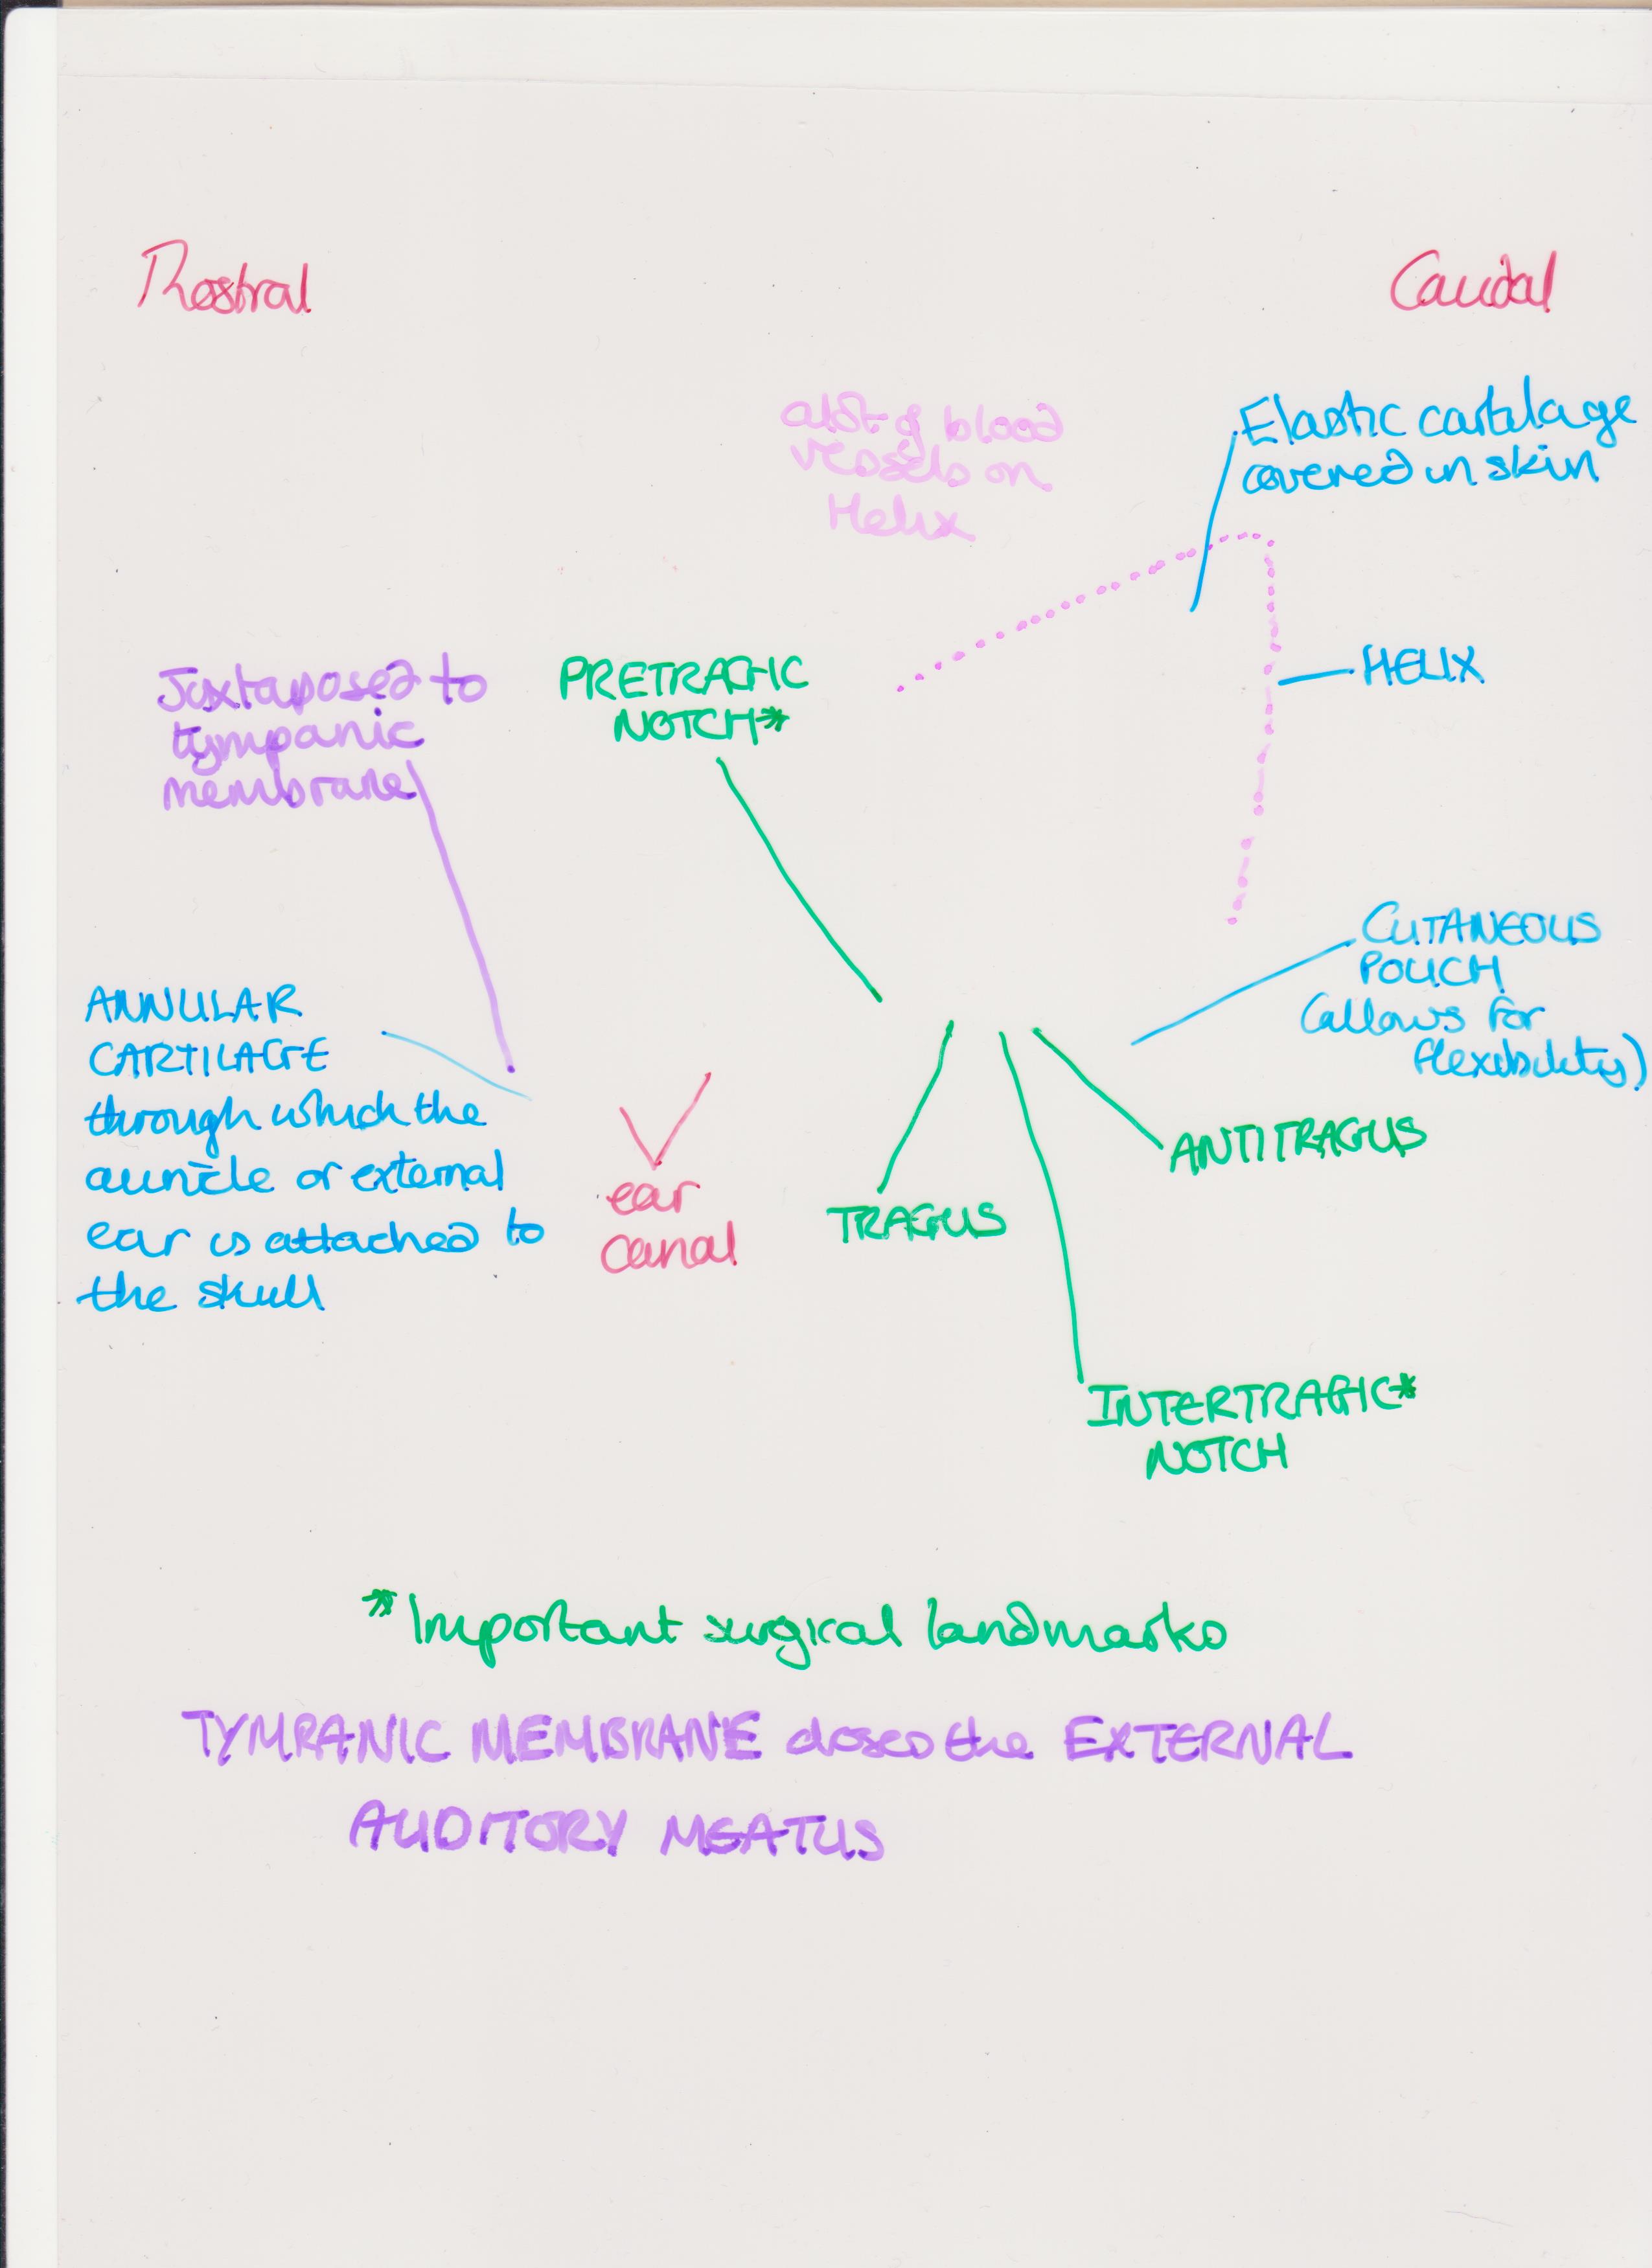 Rostral
Caudal
a lot of blood
vessels on
Helix
Elastic cartilage
covered in skin
HELIX
Juxtaposed to
tympanic
membrane
PRETRAGIC
NOTCH*
CUTANEOUS
POUCH
(allows for
flexibility)
ANNULAR
CARTILAGE
through which the
auricle or external
ear is attached to
the skull
ear
canal
TRAGUS
ANTITRAGUS
INTERTRAGIC*
NOTCH
*Important surgical landmarks
TYMPANIC MEMBRANE closes the EXTERNAL
AUDITORY MEATUS